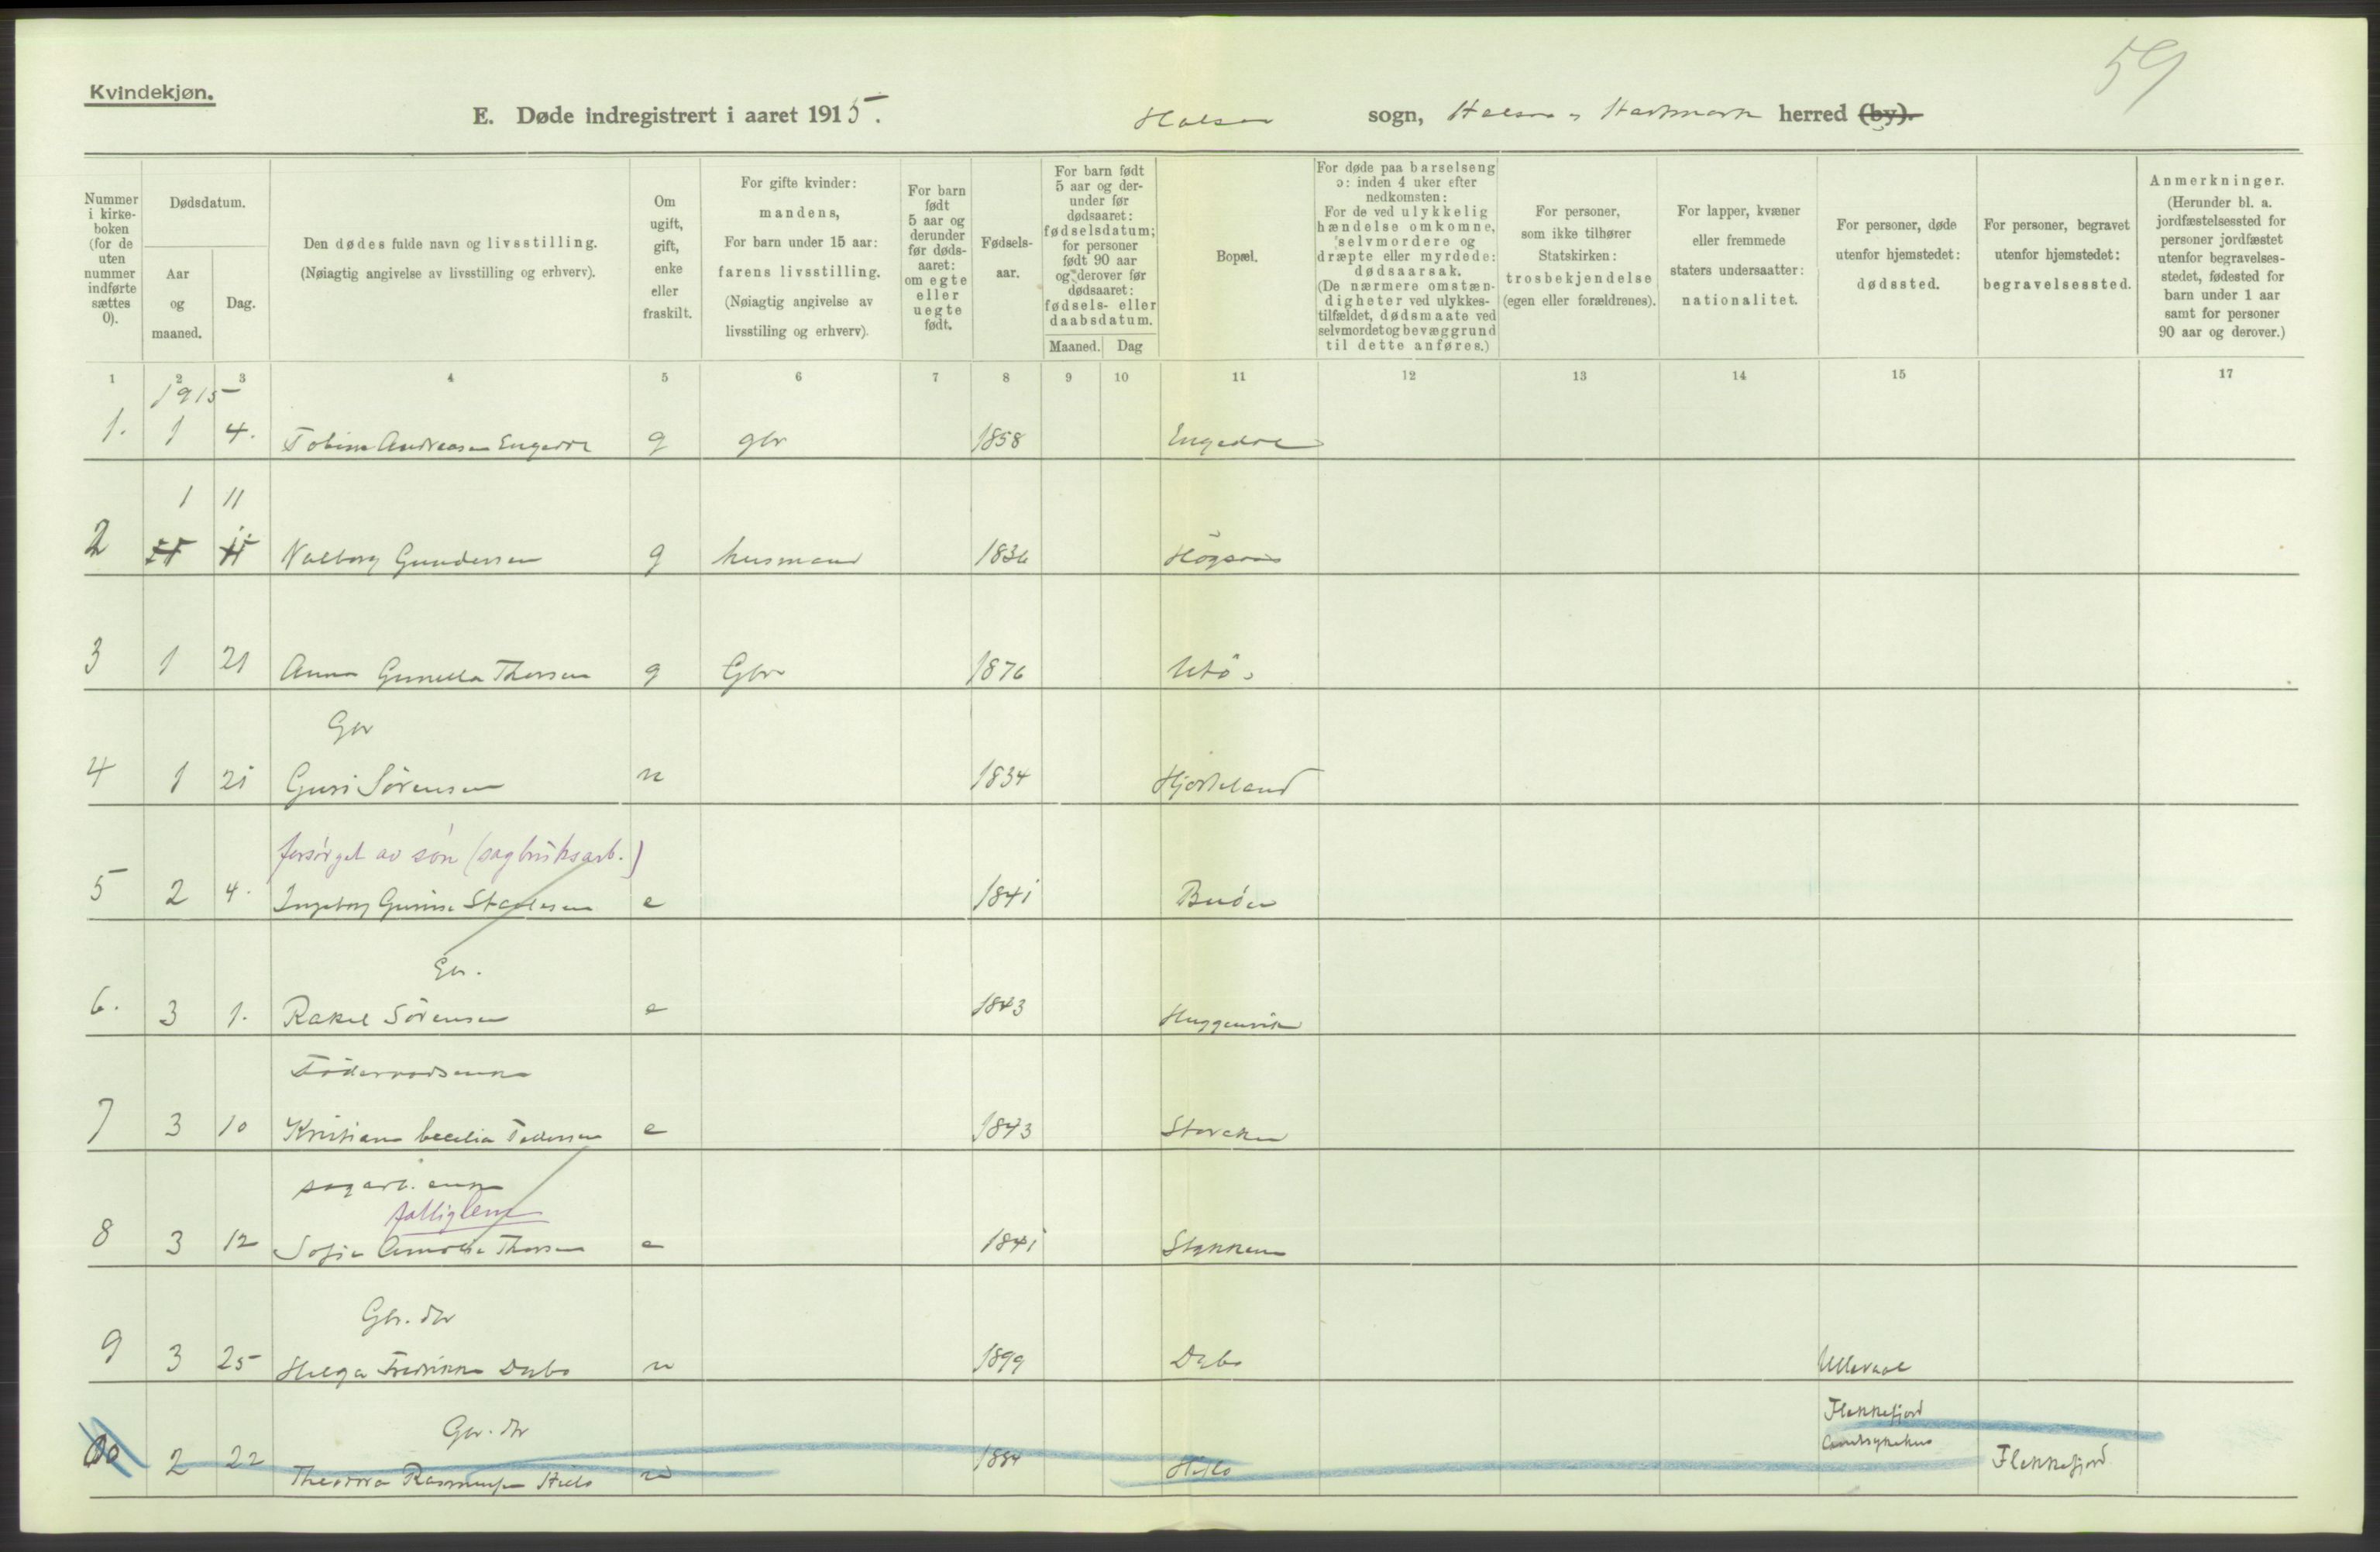 59
Kvindekjøn.
E. Døde indregistrert i aaret 1915. Halsaa sogn, Halsaa og Hartmark herred (by).
Nummer i kirkeboken (for de uten nummer indførte sættes 0).
Dødsdatum.
Aar og maaned.
Dag.
Den dødes fulde navn og livsstilling.
(Nøiagtig angivelse av livsstilling og erhverv).
Om ugift, gift, enke eller fraskilt.
For gifte kvinder: mandens, For barn under 15 aar: farens livsstilling. (Nøiagtig angivelse av livsstiling og erhverv).
For barn født 5 aar og derunder før dødsaaret: om egte eller uegte født.
Fødselsaar.
For barn født 5 aar og derunder før dødsaaret: fødselsdatum; for personer født 90 aar og derover før dødsaaret: fødsels- eller daabsdatum.
Maaned. Dag
Bopæl.
For døde paa barselseng ɔ: inden 4 uker efter nedkomsten: For de ved ulykkelig hændelse omkomne, selvmordere og dræpte eller myrdede: dødsaarsak. (De nærmere omstændigheter ved ulykkestilfældet, dødsmaate ved selvmordet og bevæggrund til dette anføres.)
For personer, som ikke tilhører Statskirken: trosbekjendelse (egen eller forældrenes).
For lapper, kvæner eller fremmede staters undersaatter: nationalitet.
For personer, døde utenfor hjemstedet: dødssted.
For personer, begravet utenfor hjemstedet: begravelsessted.
Anmerkninger. (Herunder bl. a. jordfæstelsessted for personer jordfæstet utenfor begravelsesstedet, fødested for barn under 1 aar samt for personer 90 aar og derover.)
1 2 3 4 5 6 7 8 9 10 11 12 13 14 15 17
1915
1. 1 4. Andreasen g gbr 1858
1 11
2 Gundersen g husmand 1836
3 1 21 Anna Gunella Thorsen g Gbr 1876 Utø
Gbr
4 1 21 Guri Sørensen u 1834 Hjorteland
forsørget av søn (sagbruksarb.)
5 2 4. Ingeborg e 1841
6. 3 1. Rakel Sørensen e 1843
Føderaadsenke
7 3 10 e 1843
sagarb. enke
fattiglem
8 3 12 Sofie Thorsen e 1841 Støkken
Gbr. dtr
9 3 25 Helga Fredrikke Dybo u 1899 Dybo Ullevaal
Gbr. dtr Flekkefjord
10 2 22 Theodora u 1884 amtssykehus Flekkefjord